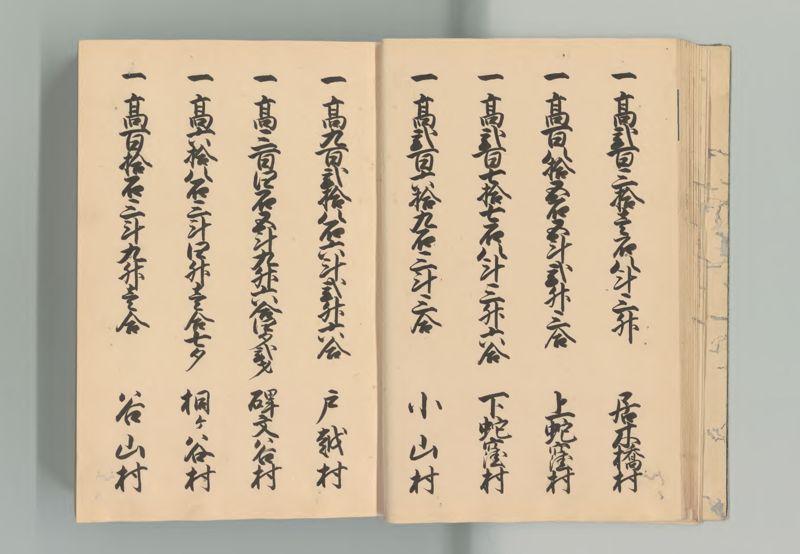 一 高弐百三拾壱石八斗三升 居木橋村
一 高百八拾五石五斗弐升三合 上蛇窪村
一 高弐百七拾七石八斗三升六合 下蛇窪村
一 高弐百六拾九石三斗三合 小山村
一 高九百弐拾八石六斗弐升六合 戸越村
一 高三百四石五斗九升六合 碑文谷村
一 高六拾八石三斗四升壱合七夕 桐ヶ谷村
一 高百拾石三斗九升壱合 谷山村